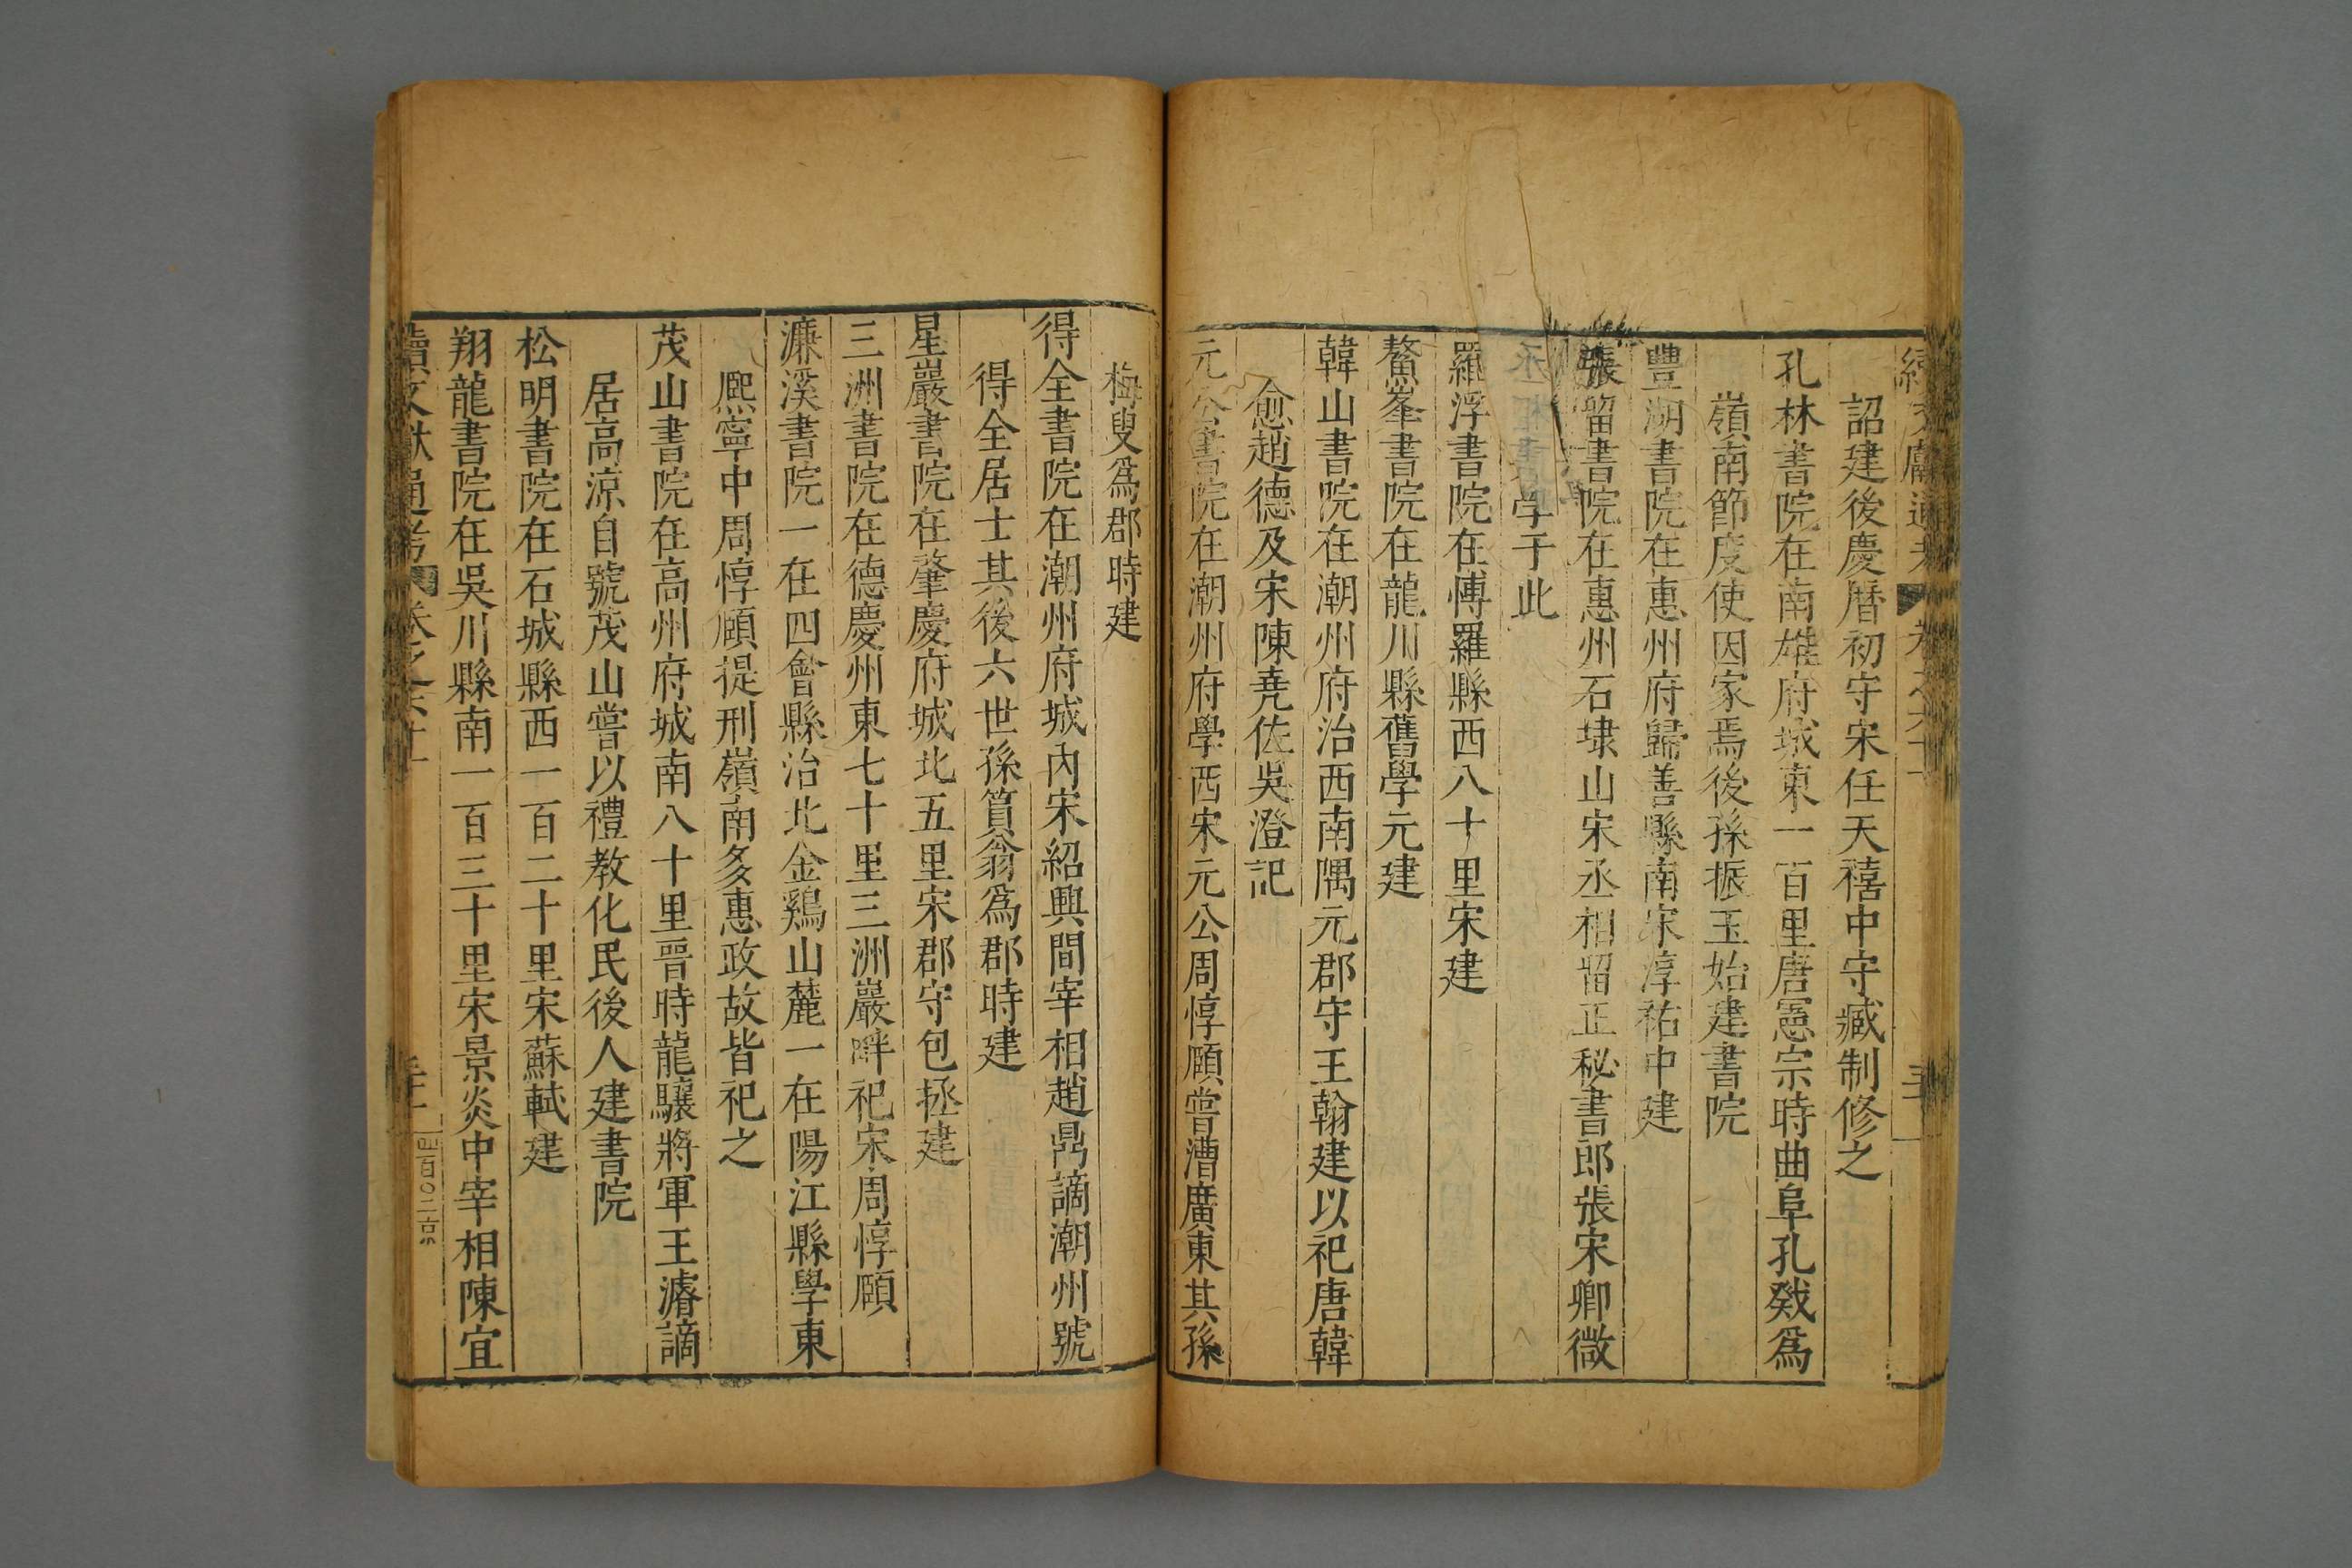 續文獻通考 卷之六十
詔建後慶曆初守宋任天禧中守臧制修之
孔林書院在南雄府城東一百里唐憲宗時曲阜孔戣爲
嶺南節度使因家焉後孫振玉始建書院
豐湖書院在惠州府歸善縣南宋淳祐中建
張留書院在惠州石埭山宋丞相留正秘書郎張宋卿微
丞相書 学于此
羅浮書院在博羅縣西八十里宋建
鰲峯書院在龍川縣舊學元建
韓山書院在潮州府治西南隅元郡守王翰建以祀唐韓
愈趙德及宋陳堯佐吳澄記
元公書院在潮州府學西宋元公周惇頤嘗漕廣東其孫
梅叟爲郡時建
得全書院在潮州府城內宋紹興間宰相趙鼎謫潮州號
得全居士其後六世孫篔翁爲郡時建
星巖書院在肇慶府城北五里宋郡守包拯建
三洲書院在德慶州東七十里三洲巖畔祀宋周惇頤
濂溪書院一在四會縣治北金鷄山麓一在陽江縣學東
熈寧中周惇頤提刑嶺南多惠政故皆祀之
茂山書院在高州府城南八十里晉時龍驤將軍王濬謫
居高涼自號茂山嘗以禮教化民後人建書院
松明書院在石城縣西一百二十里宋蘇軾建
翔龍書院在吳川縣南一百三十里宋景炎中宰相陳宜
續文獻通考 卷之六十
四百〇二